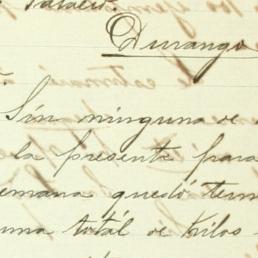 Durango
Sin ninguna de
la presente para
semana quedó term
una total de kilos